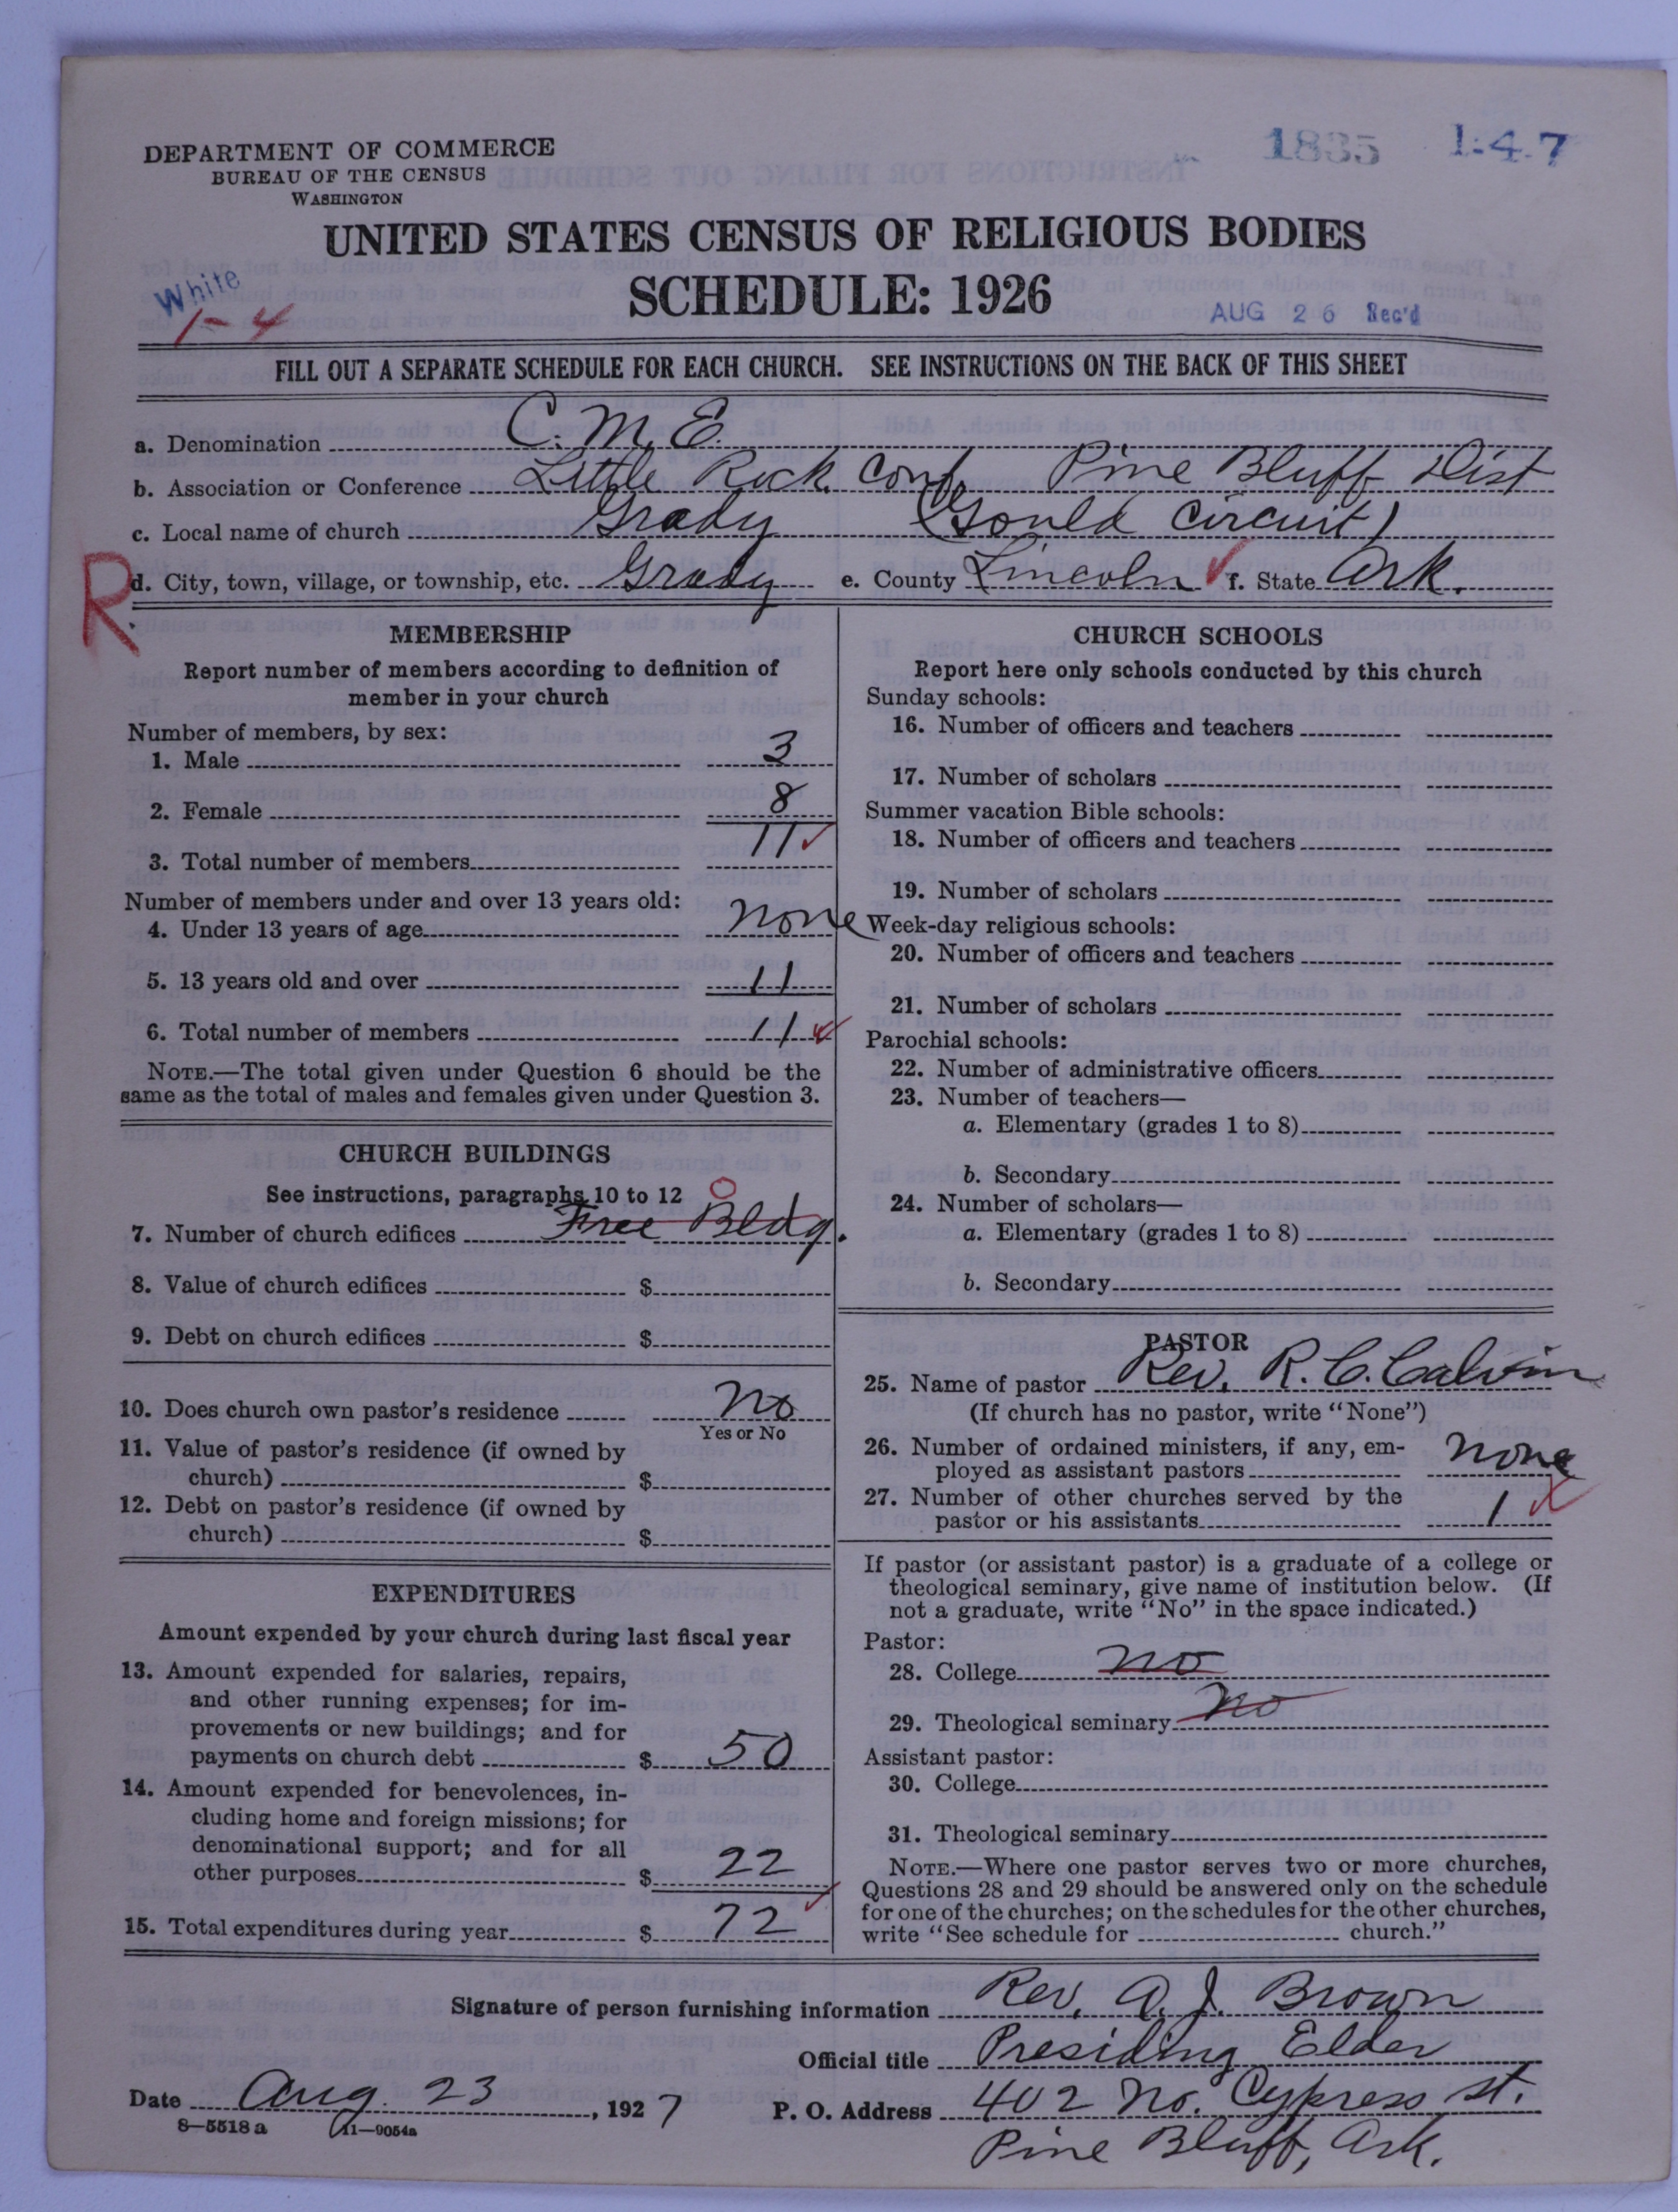 DEPARTMENT OF COMMERCE
BUREAU OF THE CENSUS
WASHINGTON
1835 1:4.7
UNITED STATES CENSUS OF RELIGIOUS BODIES
SCHEDULE: 1926
White
1-4
AUG 26 Rec'd
FILL OUT A SEPARATE SCHEDULE FOR EACH CHURCH. SEE INSTRUCTIONS ON THE BACK OF THIS SHEET
a. Denomination C. M. E.
b. Association or Conference Little Rock Conf. Pine Bluff Dist
c. Local name of church Grady (Gould Circuit)
R
d. City, town, village, or township, etc. Grady e. County Lincoln f. State Ark.
MEMBERSHIP
Report number of members according to definition of
member in your church
Number of members, by sex:
1. Male 3
2. Female 8
3. Total number of members 11
Number of members under and over 13 years old:
4. Under 13 years of age none
5. 13 years old and over 11
6. Total number of members 11
NOTE.—The total given under Question 6 should be the
same as the total of males and females given under Question 3.
CHURCH BUILDINGS
See instructions, paragraphs 10 to 12 0
7. Number of church edifices Free Bldg.
8. Value of church edifices $
9. Debt on church edifices $
10. Does church own pastor's residence No
Yes or No
11. Value of pastor's residence (if owned by
church) $
12. Debt on pastor's residence (if owned by
church) $
EXPENDITURES
Amount expended by your church during last fiscal year
13. Amount expended for salaries, repairs,
and other running expenses; for im-
provements or new buildings; and for
payments on church debt $ 50
14. Amount expended for benevolences, in-
cluding home and foreign missions; for
denominational support; and for all
other purposes $ 22
15. Total expenditures during year $ 72
CHURCH SCHOOLS
Report here only schools conducted by this church
Sunday schools:
16. Number of officers and teachers
17. Number of scholars
Summer vacation Bible schools:
18. Number of officers and teachers
19. Number of scholars
Week-day religious schools:
20. Number of officers and teachers
21. Number of scholars
Parochial schools:
22. Number of administrative officers
23. Number of teachers—
a. Elementary (grades 1 to 8)
b. Secondary
24. Number of scholars—
a. Elementary (grades 1 to 8)
b. Secondary
PASTOR
25. Name of pastor Rev. R. C. Calvin
(If church has no pastor, write "None")
26. Number of ordained ministers, if any, em-
ployed as assistant pastors none
27. Number of other churches served by the
pastor or his assistants 1
If pastor (or assistant pastor) is a graduate of a college or
theological seminary, give name of institution below. (If
not a graduate, write "No" in the space indicated.)
Pastor:
28. College no
29. Theological seminary no
Assistant pastor:
30. College
31. Theological seminary
NOTE.—Where one pastor serves two or more churches,
Questions 28 and 29 should be answered only on the schedule
for one of the churches; on the schedules for the other churches,
write "See schedule for church."
Signature of person furnishing information Rev. A. J. Brown
Official title Presiding Elder
Date Aug. 23, 1927 P. O. Address 402 No. Cypress St.
8-5518a 11-9054a
Pine Bluff, Ark.